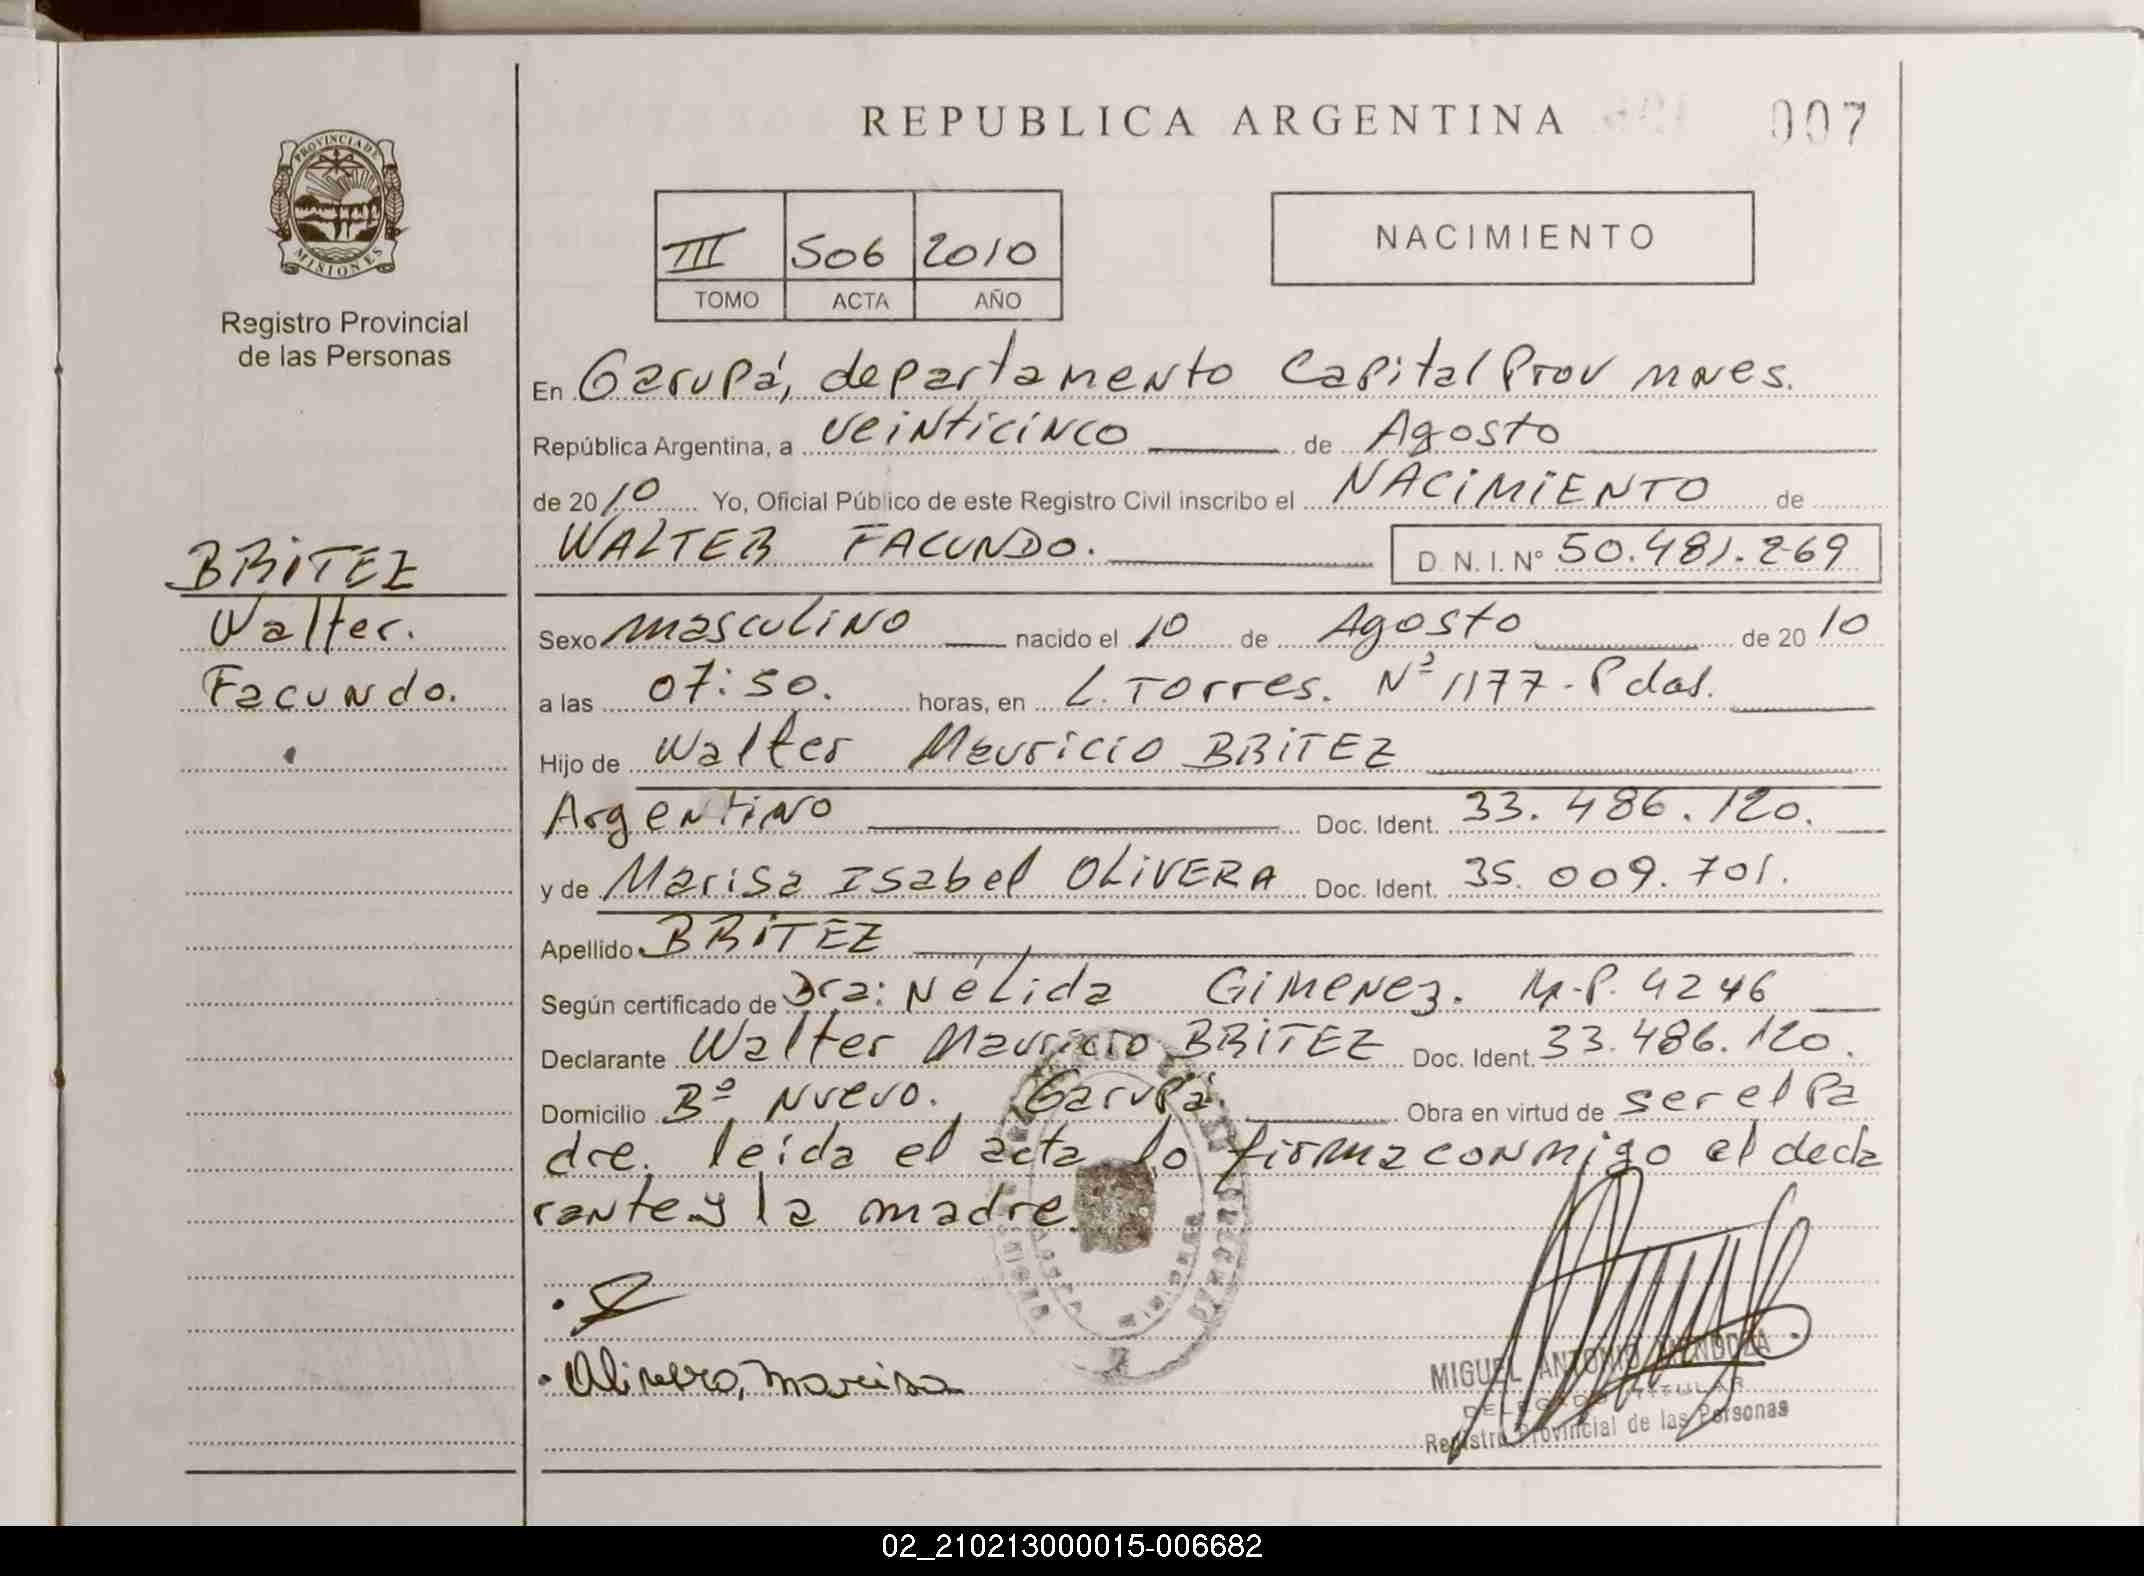 REPUBLICA ARGENTINA
007
PROVINCIA DE
MISIONES
Registro Provincial
de las Personas
III 506 2010
TOMO ACTA AÑO
NACIMIENTO
En Garupá, departamento Capital Prov Mnes.
República Argentina, a veinticinco de Agosto
de 2010 Yo, Oficial Público de este Registro Civil inscribo el NACIMIENTO de
WALTER FACUNDO. D.N.I. Nº 50.481.269
BRITEZ
Walter.
Facundo.
Sexo masculino nacido el 10 de Agosto de 2010
a las 07:50. horas, en L. Torres. Nº 1177 - Pdas.
Hijo de Walter Mauricio BRITEZ
Argentino Doc. Ident. 33.486.120.
y de Marisa Isabel OLIVERA Doc. Ident. 35.009.701.
Apellido BRITEZ
Según certificado de Dra: Nélida GIMENEZ. M.P. 4246
Declarante Walter Mauricio BRITEZ Doc. Ident. 33.486.120.
Domicilio Bº Nuevo. Garupá. Obra en virtud de ser el Pa
dre. leída el acta lo firma conmigo el decla
rante y la madre.
Olivera, Marisa
MIGUEL ANTONIO MENDOZA
DELEGADO TITULAR
Registro Provincial de las Personas
02_210213000015-006682